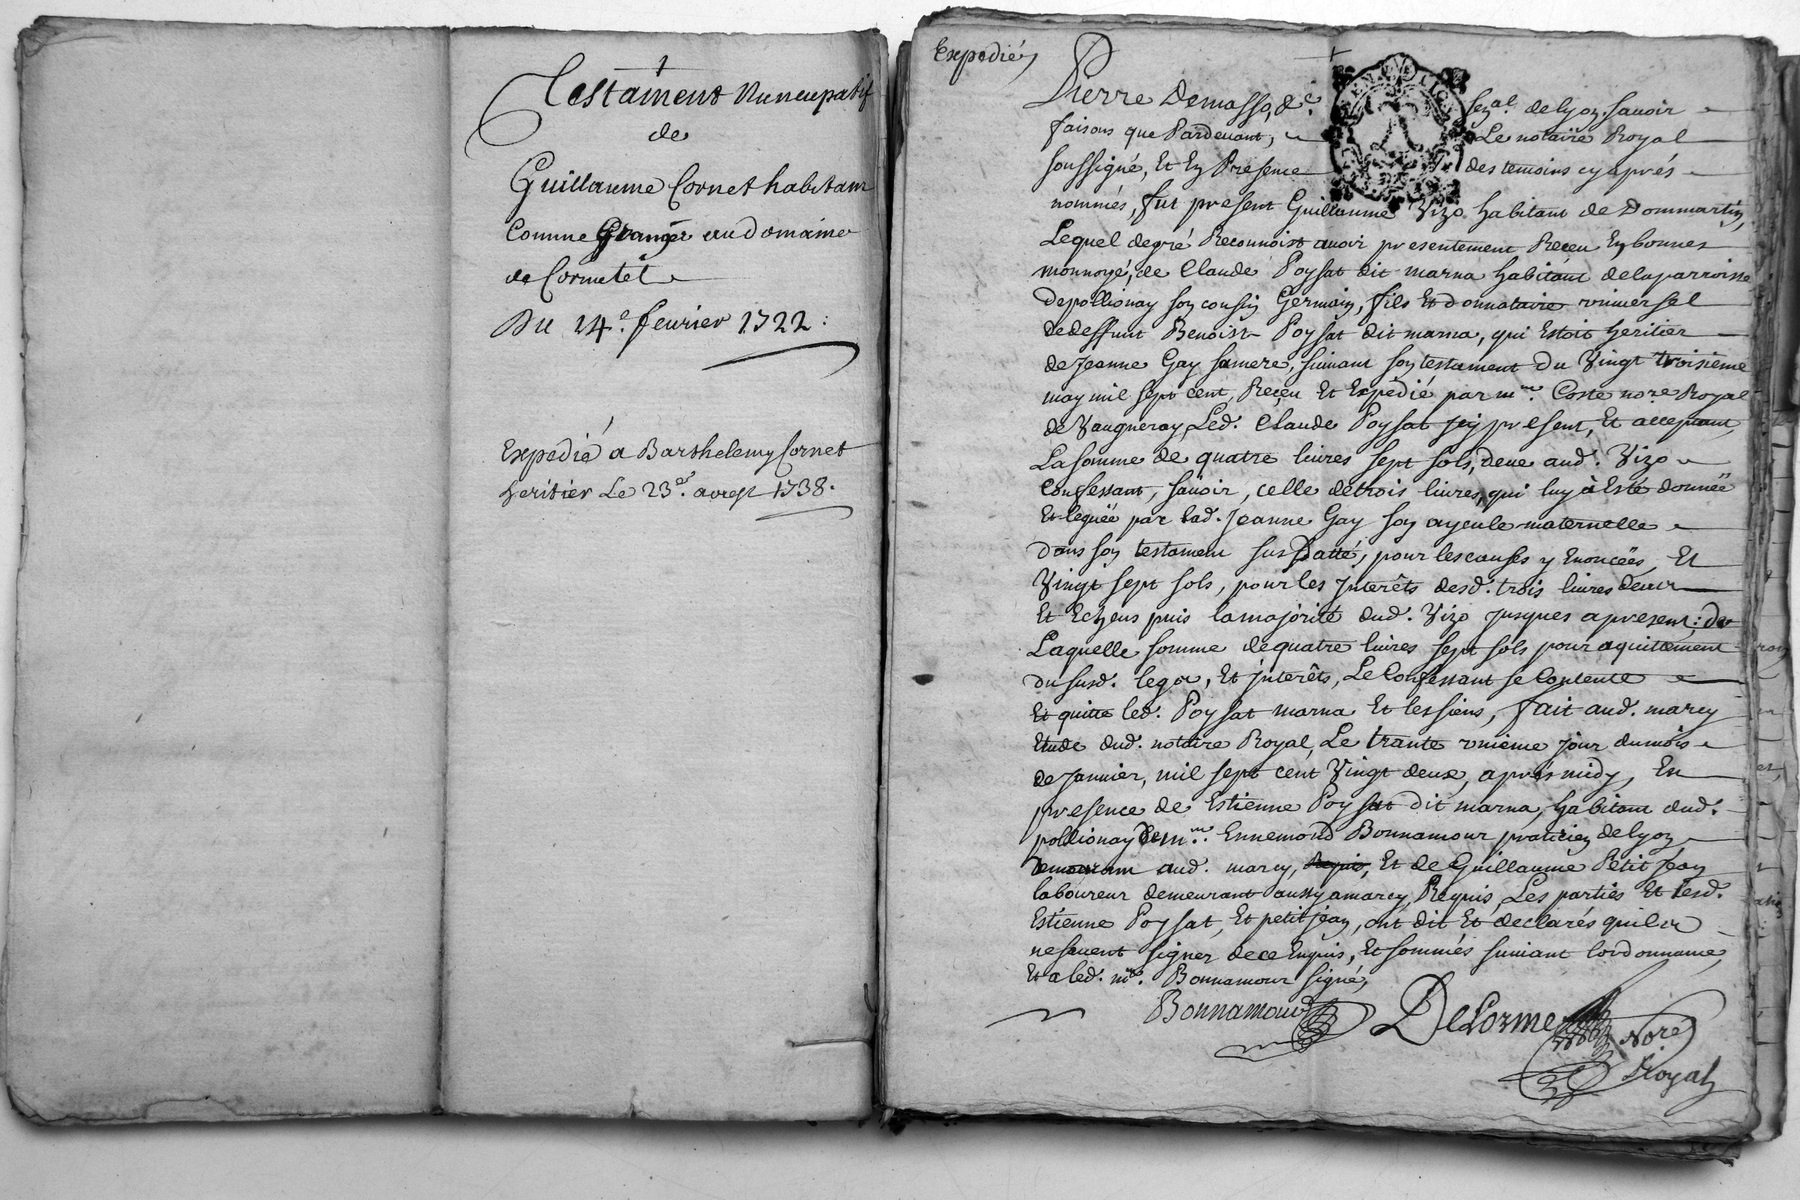 Testament Nuncupatif
de
Guillaume Cornet habitant
Comme Granger au Domaine
de Cornetet
Du 14e. feurier 1722 :
Expedié a Barthelemy Cornet
heritier Le 23e. 1738.
Expedié
Pierre Demasso, &c. senal. de Lyon. sauoir
faisons que Pardeuant, Le notaire Royal
soussigné, Et En Presence des temoins cy aprés
nommés, fut present Guillaume Vizo habitant de Dommartin,
Lequel degré Reconnoist auoir presentement Receu En bonnes
monnoyé, de Claude Poysat dit marna habitant de la parroisse
de pollionay son cousin Germain, fils Et donnataire vniuersel
de deffunt Benoist Poysat dit marna, qui Estoit heritier
de Jeanne Gay sa mere, suiuant son testament du Vingt troisieme
may mil sept cent, Receu Et Expedié par mre. Coste nore Royal
de Vaugneray, Led. Claude Poysat jcy present, Et acceptant,
La somme de quatre liures sept sols, deue aud. Vizo
Confessant, sauoir, celle de trois liures, qui luy à Esté donnée
Et leguée par lad. Jeanne Gay son ayeule maternelle
dans son testament sus datté, pour les causes y Enoncées, Et
Vingt sept sols, pour les Jnterêts desd. trois liures deux
Et Echeus puis la majorité dud. Vizo jusques a present : de
Laquelle somme de quatre liures sept sols pour aquittement
du susd. legs, Et jnterêts, Le Confessant se Contente
Et quitte led. Poysat marna Et les siens, fait aud. marcy
Etude dud. notaire Royal, Le trante vnieme jour du mois
de Januier, mil sept cent Vingt deux, apres midy, En
presence de Estienne Poysat dit marna, habitant dud.
pollionay de mre. Ennemond Bonnamour praticien de Lyon
demeurant aud. marcy, Et de Guillaume Petit Jean
laboureur demeurant aussy a marcy, Requis, Les parties Et lesd.
Estienne Poysat, Et petit jean, ont dit Et declarés quils
ne sauent signer de ce Enquis, Et sommés suiuant lordonnance,
Et a led. mre. Bonnamour signé,
Bonnamour DeLorme Nore
Royal